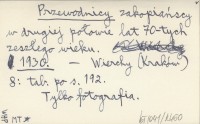 Przewodnicy zakopiańscy
w drugiej połowie lat 70-tych
zeszłego wieku.
1930. — Wierchy (Kraków)
8: tab. po s. 192.
Tylko fotografia.
WHP MT